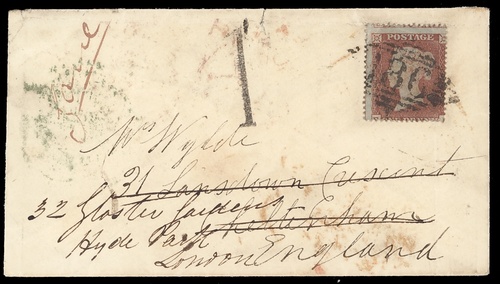 POSTAGE
1
Mrs Wylde
31 Lansdown Crescent
32 Gloster Gardens
Cheltenham
Hyde Park
London England